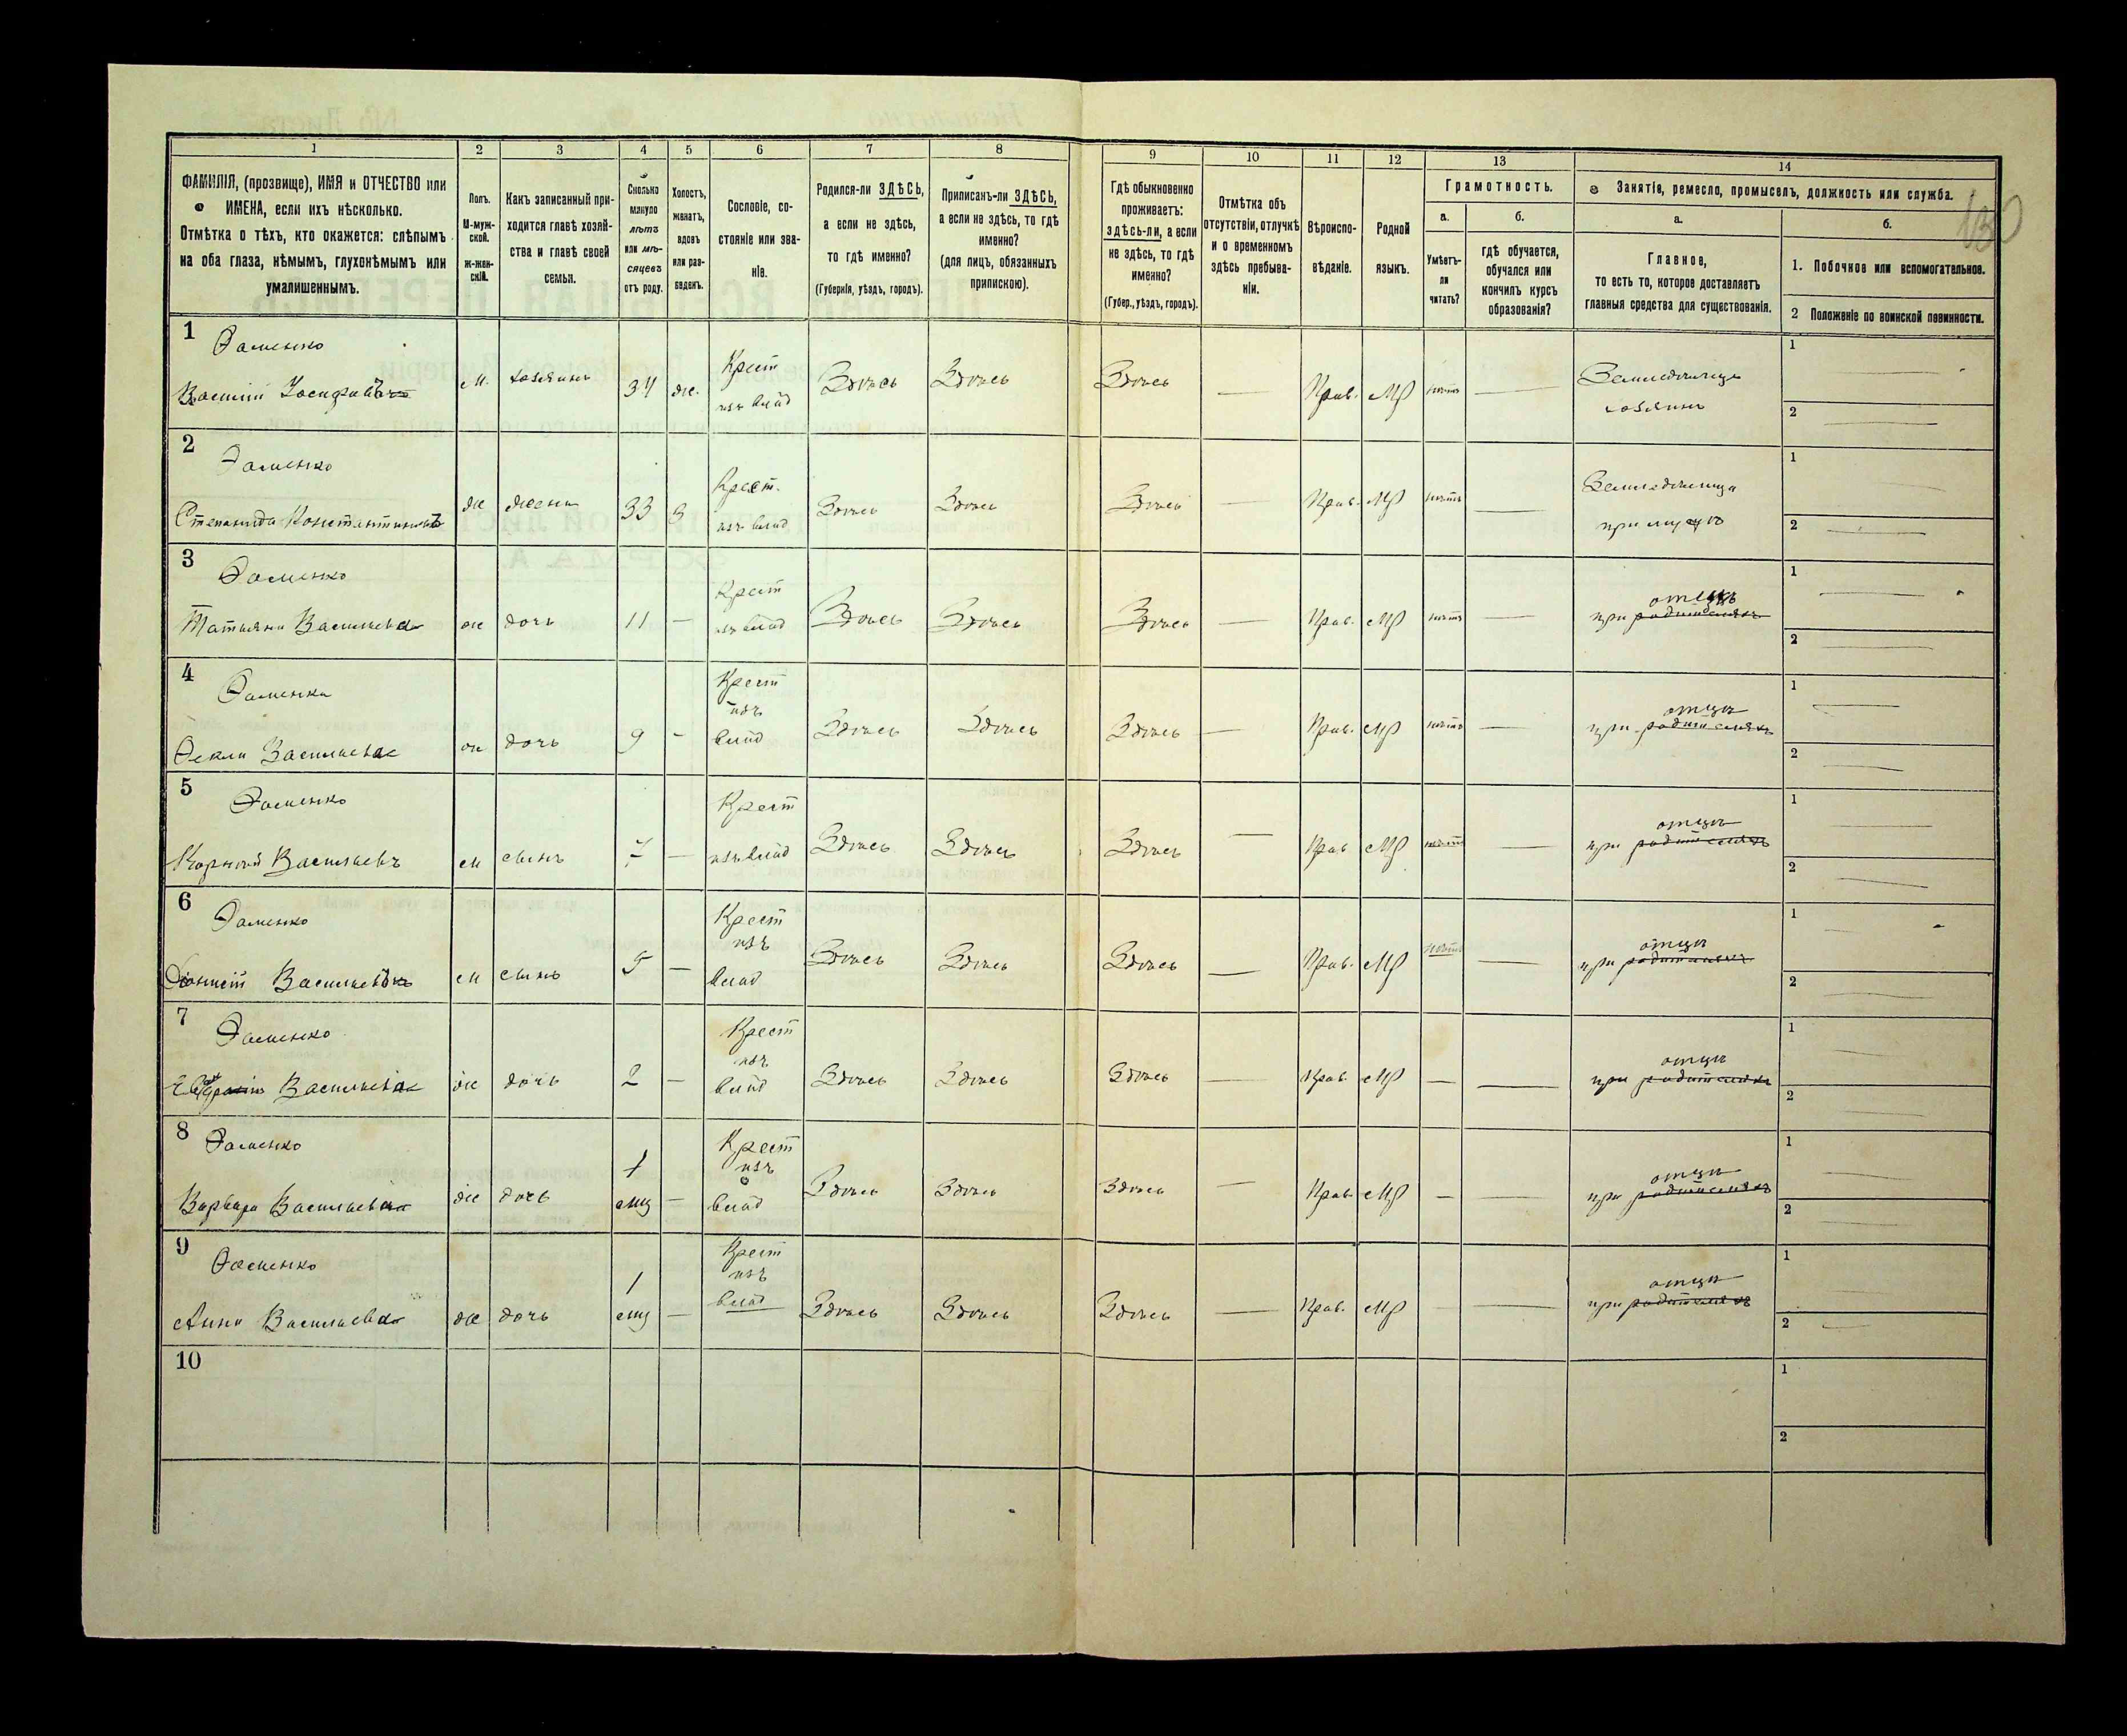 130
1 2 3 4 5 6 7 8 9 10 11 12 13 14
ФАМИЛІЯ, (прозвище), ИМЯ и ОТЧЕСТВО или
ИМЕНА, если ихъ нѣсколько.
Отмѣтка о тѣхъ, кто окажется: слѣпымъ
на оба глаза, нѣмымъ, глухонѣмымъ или
умалишеннымъ.
Полъ.
М-муж-
ской.
ж-жен-
скій.
Какъ записанный при-
ходится главѣ хозяй-
ства и главѣ своей
семьи.
Сколько
минуло
лѣтъ
или мѣ-
сяцевъ
отъ роду.
Холостъ,
женатъ,
вдовъ
или раз-
веденъ.
Сословіе, со-
стояніе или зва-
ніе.
Родился-ли ЗДѢСЬ,
а если не здѣсь,
то гдѣ именно?
(Губернія, уѣздъ, городъ).
Приписанъ-ли ЗДѢСЬ,
а если не здѣсь, то гдѣ
именно?
(для лицъ, обязанныхъ
припискою).
Гдѣ обыкновенно
проживаетъ:
здѣсь-ли, а если
не здѣсь, то гдѣ
именно?
(Губер., уѣздъ, городъ).
Отмѣтка объ
отсутствіи, отлучкѣ
и о временномъ
здѣсь пребыва-
ніи.
Вѣроиспо-
вѣданіе.
Родной
языкъ.
Грамотность.
а.
Умѣетъ-
ли
читать?
б.
гдѣ обучается,
обучался или
кончилъ курсъ
образованія?
Занятіе, ремесло, промыселъ, должность или служба.
а.
Главное,
то есть то, которое доставляетъ
главныя средства для существованія.
б.
1. Побочное или вспомогательное.
2 Положеніе по воинской повинности.
1
Ѳоменко
Василій Іосифовъ
м. хозяинъ 34 ж.
Крест
изъ влад
Здѣсь Здѣсь Здѣсь — Прав. Мр нѣтъ —
хозяинъ
1
2
2
Ѳоменко
Степанида Константинова
ж жена 33 з
Крест.
изъ влад
Здѣсь Здѣсь Здѣсь — Прав. Мр нѣтъ —
при мужѣ
1
2
3
Ѳоменко
Татьяна Васильева
ж дочь 11 —
Крест
изъ влад
Здѣсь Здѣсь Здѣсь — Прав. Мр нѣтъ —
отцѣ
при родителяхъ
1
2
4
Ѳоменко
Ѳекла Васильева
ж дочь 9 -
Крест
изъ
влад
Здѣсь Здѣсь Здѣсь — Прав. Мр нѣтъ —
отцѣ
при родителяхъ
1
2
5
Ѳоменко
Корній Васильевъ
м сынъ 7 —
Крест
изъ влад
Здѣсь Здѣсь Здѣсь — Прав Мр нѣтъ —
отцѣ
при родителяхъ
1
2
6
Ѳоменко
Васильевъ
м сынъ 5 —
Крест
изъ
влад
Здѣсь Здѣсь Здѣсь — Прав. Мр нѣтъ —
отцѣ
при родителяхъ
1
2
7
Ѳоменко
Васильева
ж дочь 2 —
Крест
изъ
влад
Здѣсь Здѣсь Здѣсь — Прав. Мр — —
отцѣ
при родителяхъ
1
2
8
Ѳоменко
Варвара Васильева
ж дочь 1 мц —
Крест
изъ
влад
Здѣсь Здѣсь Здѣсь — Прав. Мр — —
отцѣ
при родителяхъ
1
2
9
Ѳоменко
Анна Васильева
ж дочь 1 мц —
Крест
изъ
влад
Здѣсь Здѣсь Здѣсь — Прав. Мр —
отцѣ
при родителяхъ
1
2
10
1
2